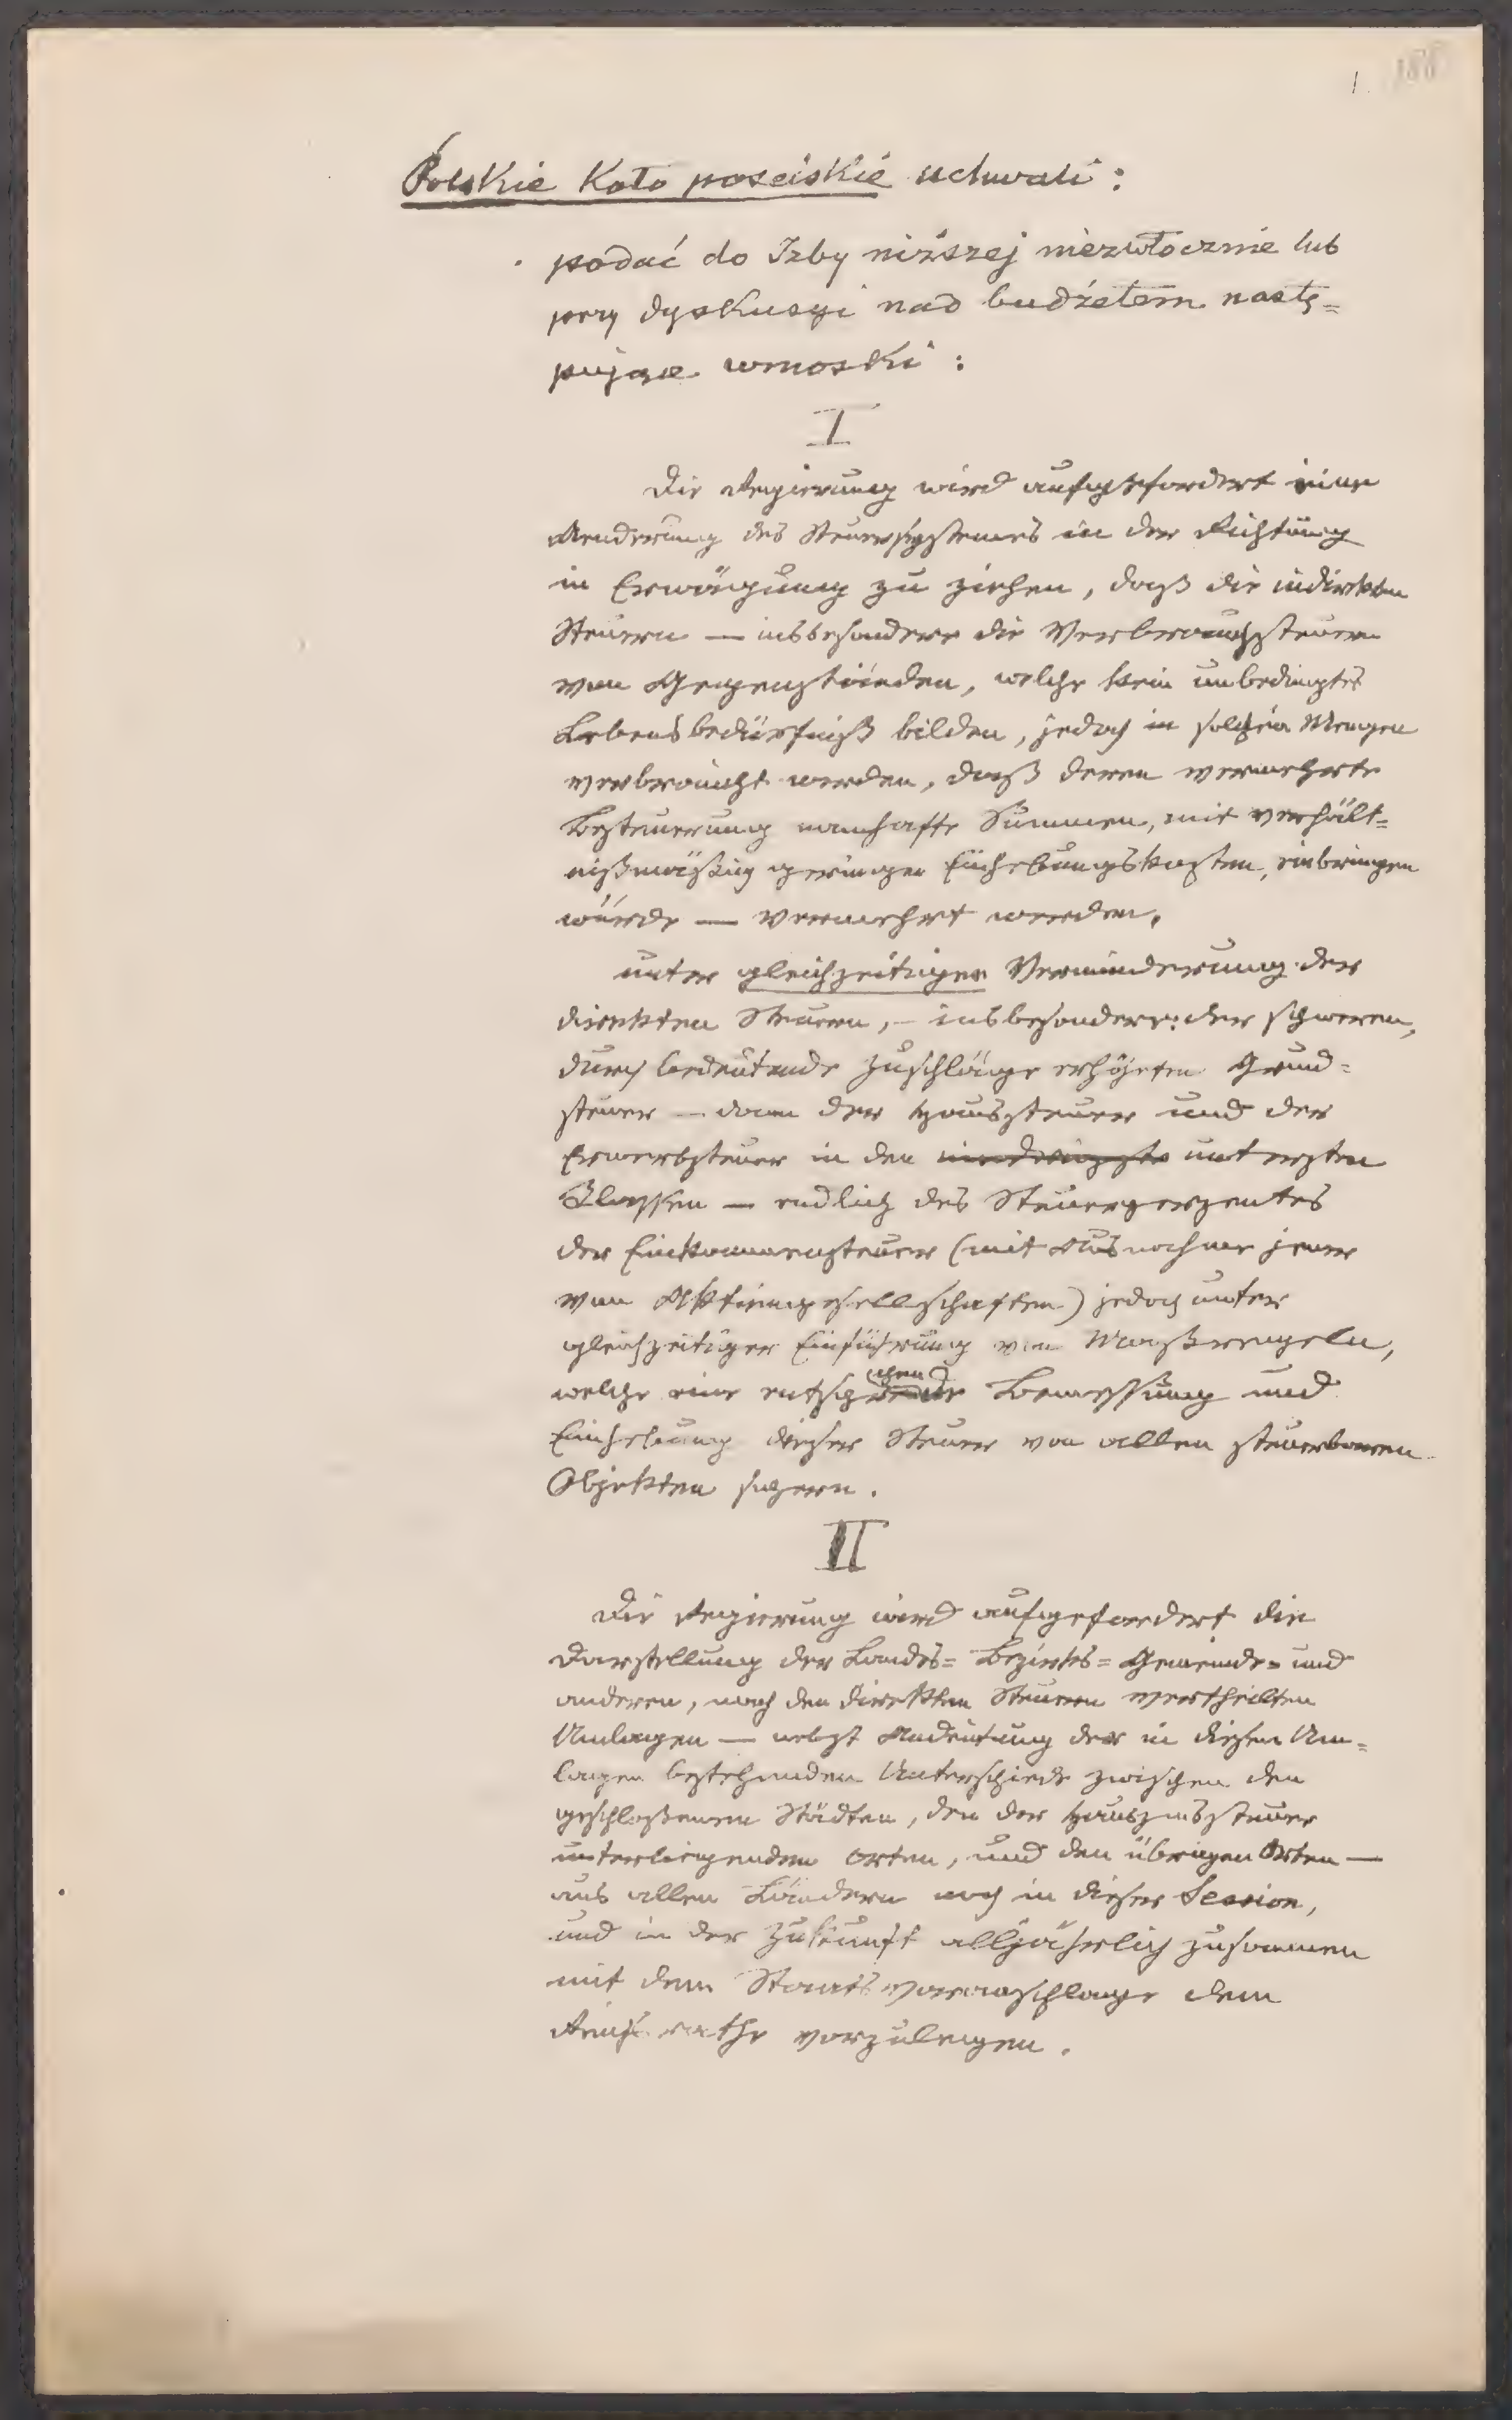 1. 188
Polskie Koło poselskie uchwali:
podać do Izby niższej niezwłocznie lub
przy dyskusyi nad budżetem nastę=
pujące wnioski:
I
Die Regierung wird aufgefordert eine
Aenderung des Steuersystemes in der Richtung
in Erwägung zu ziehen, daß die indirekten
Steuern — insbesondere die Verbrauchssteuern
von Gegenständen, welche kein unbedingtes
Lebensbedürfniß bilden, jedoch in solchen Mengen
verbraucht werden, daß deren vermehrte
Besteuerung namhafte Summen, mit verhält=
nißmäßig geringen Einhebungskosten, einbringen
würde — vermehrt werden,
unter gleichzeitiger Verminderung der
direkten Steuern, – insbesondere: der schweren,
durch bedeutende Zuschläge erhöhten Grund=
steuer — dann der Haussteuer und der
Erwerbsteuer in den niedrigste untersten
Klassen — endlich des Steuerperzentes
der Einkommensteuer (mit Ausnahme jener
von Aktiengesellschaften) jedoch unter
gleichzeitiger Einführung von Maßregeln,
welche eine entsprechende Bemessung und
Einhebung dieser Steuer von allen steuerbaren
Objekten sichern.
II
Die Regierung wird aufgefordert die
Darstellung der Landes= Bezirks= Gemeinde= und
anderen, nach den direkten Steuern vertheilten
Umlagen — nebst Andeutung der in diesen Um=
lagen bestehenden Unterschiede zwischen den
geschloßenen Städten, den der Hauszinssteuer
unterliegenden Orten, und den übrigen Orten —
aus allen Ländern noch in dieser Session,
und in der Zukunft alljährlich zusammen
mit dem Staatsvoranschlage dem
Reichsrathe vorzulegen.